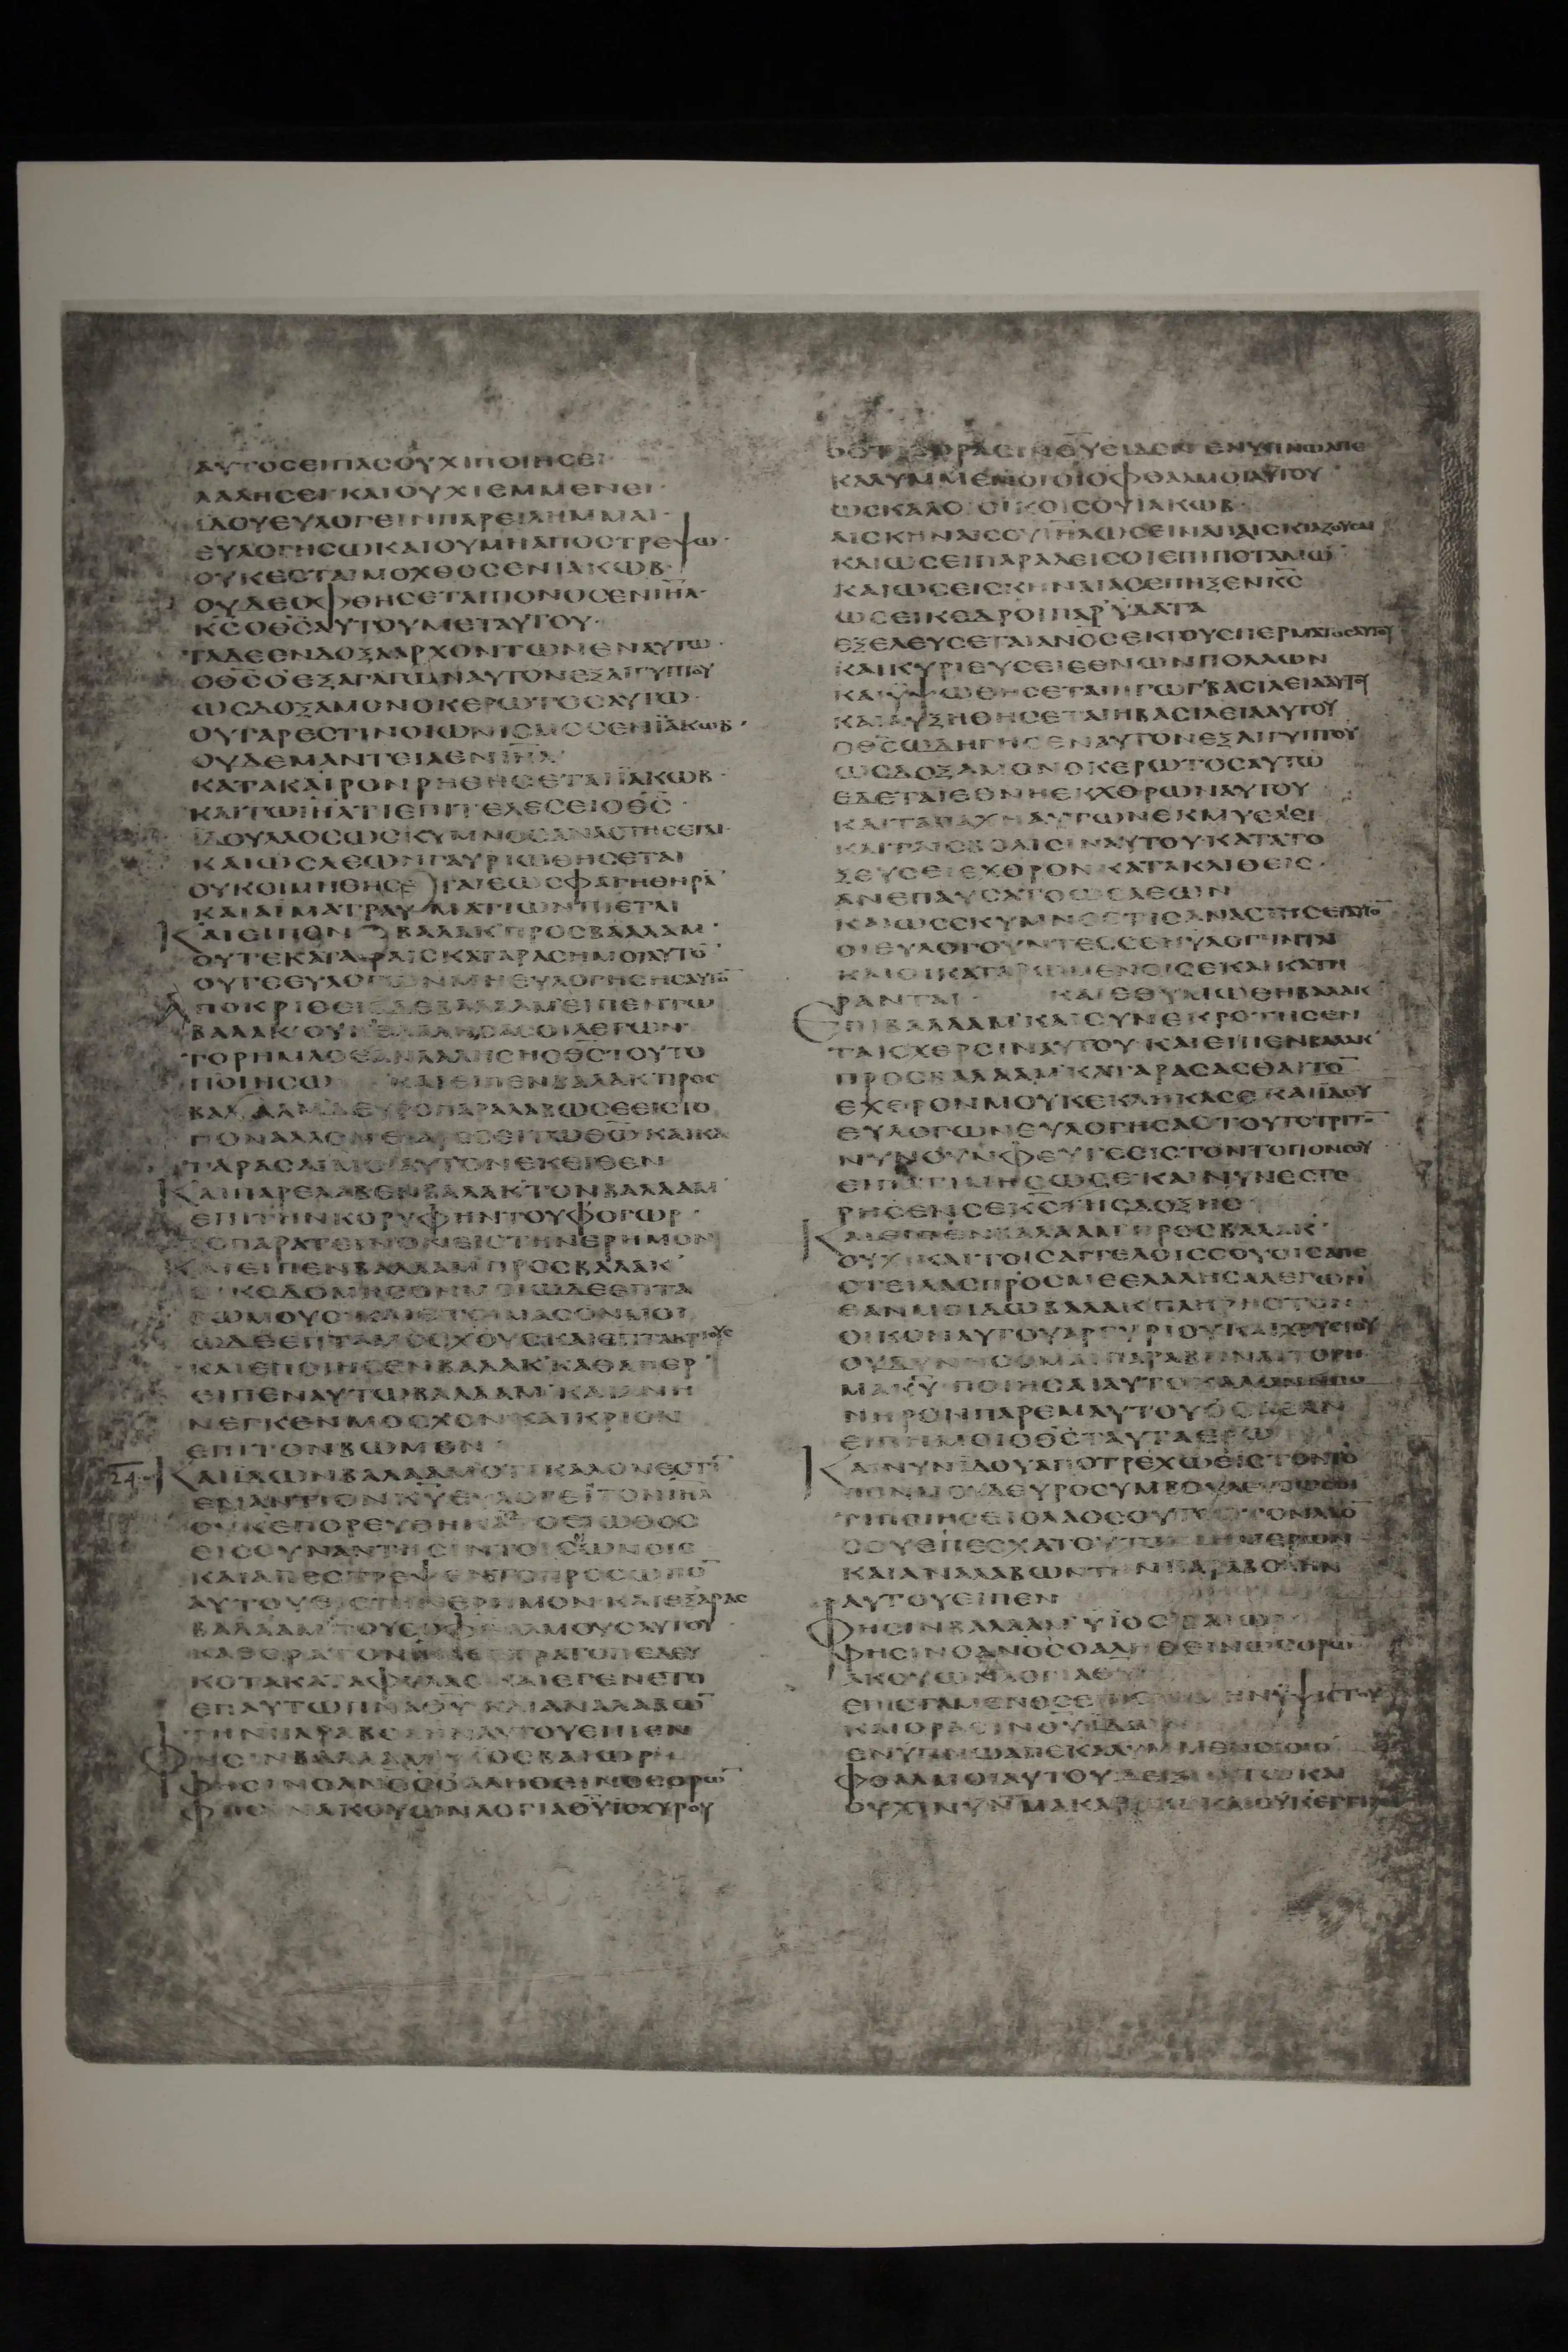 ΑΥΤΟΣ ΕΙΠΑΣ ΟΥΧΙ ΠΟΙΗΣΕΙ
ΛΑΛΗΣΕΙ ΚΑΙ ΟΥΧΙ ΕΜΜΕΝΕΙ·
ΙΔΟΥ ΕΥΛΟΓΕΙΝ ΠΑΡΕΙΛΗΜΜΑΙ·
ΕΥΛΟΓΗΣΩ ΚΑΙ ΟΥ ΜΗ ΑΠΟΣΤΡΕΨΩ·
ΟΥΚ ΕΣΤΑΙ ΜΟΧΘΟΣ ΕΝ ΙΑΚΩΒ·
ΟΥΔΕ ΟΦΘΗΣΕΤΑΙ ΠΟΝΟΣ ΕΝ ΙΗΛ·
ΚΣ Ο ΘΣ ΑΥΤΟΥ ΜΕΤ ΑΥΤΟΥ·
ΤΑ ΔΕ ΕΝΔΟΞΑ ΑΡΧΟΝΤΩΝ ΕΝ ΑΥΤΩ·
Ο ΘΣ Ο ΕΞΑΓΑΓΩΝ ΑΥΤΟΝ ΕΞ ΑΙΓΥΠΤΟΥ
ΩΣ ΔΟΞΑ ΜΟΝΟΚΕΡΩΤΟΣ ΑΥΤΩ·
ΟΥ ΓΑΡ ΕΣΤΙΝ ΟΙΩΝΙΣΜΟΣ ΕΝ ΪΑΚΩΒ·
ΟΥΔΕ ΜΑΝΤΕΙΑ ΕΝ ΙΗΛ
ΚΑΤΑ ΚΑΙΡΟΝ ΡΗΘΗΣΕΤΑΙ ΪΑΚΩΒ·
ΚΑΙ ΤΩ ΙΗΛ ΤΙ ΕΠΙΤΕΛΕΣΕΙ Ο ΘΣ·
ΙΔΟΥ ΛΑΟΣ ΩΣ ΣΚΥΜΝΟΣ ΑΝΑΣΤΗΣΕΤΑΙ·
ΚΑΙ ΩΣ ΛΕΩΝ ΓΑΥΡΙΩΘΗΣΕΤΑΙ
ΟΥ ΚΟΙΜΗΘΗΣΕΤΑΙ ΕΩΣ ΦΑΓΗ ΘΗΡΑ
ΚΑΙ ΑΙΜΑ ΤΡΑΥΜΑΤΙΩΝ ΠΙΕΤΑΙ
ΚΑΙ ΕΙΠΕΝ ΒΑΛΑΚ ΠΡΟΣ ΒΑΛΑΑΜ·
ΟΥΤΕ ΚΑΤΑΡΑΙΣ ΚΑΤΑΡΑΣΗ ΜΟΙ ΑΥΤΟ
ΟΥΤΕ ΕΥΛΟΓΩΝ ΜΗ ΕΥΛΟΓΗΣΗΣ ΑΥΤΟ
ΑΠΟΚΡΙΘΕΙΣ ΔΕ ΒΑΛΑΑΜ ΕΙΠΕΝ ΤΩ
ΒΑΛΑΚ ΟΥΚ ΕΛΑΛΗΣΑ ΣΟΙ ΛΕΓΩΝ
ΤΟ ΡΗΜΑ Ο ΕΑΝ ΛΑΛΗΣΗ Ο ΘΣ ΤΟΥΤΟ
ΠΟΙΗΣΩ ΚΑΙ ΕΙΠΕΝ ΒΑΛΑΚ ΠΡΟΣ
ΒΑΛΑΑΜ ΔΕΥΡΟ ΠΑΡΑΛΑΒΩ ΣΕ ΕΙΣ ΤΟ
ΠΟΝ ΑΛΛΟΝ ΕΙ ΑΡΕΣΕΙ ΤΩ ΘΩ ΚΑΙ ΚΑ
ΤΑΡΑΣΑΙ ΜΟΙ ΑΥΤΟΝ ΕΚΕΙΘΕΝ
ΚΑΙ ΠΑΡΕΛΑΒΕΝ ΒΑΛΑΚ ΤΟΝ ΒΑΛΑΑΜ
ΕΠΙ ΤΗΝ ΚΟΡΥΦΗΝ ΤΟΥ ΦΟΓΩΡ·
ΤΟ ΠΑΡΑΤΕΙΝΟΝ ΕΙΣ ΤΗΝ ΕΡΗΜΟΝ
ΚΑΙ ΕΙΠΕΝ ΒΑΛΑΑΜ ΠΡΟΣ ΒΑΛΑΚ
ΟΙΚΟΔΟΜΗΣΟΝ ΜΟΙ ΩΔΕ ΕΠΤΑ
ΒΩΜΟΥΣ ΚΑΙ ΕΤΟΙΜΑΣΟΝ ΜΟΙ
ΩΔΕ ΕΠΤΑ ΜΟΣΧΟΥΣ ΚΑΙ ΕΠΤΑ ΚΡΙΟΥΣ
ΚΑΙ ΕΠΟΙΗΣΕΝ ΒΑΛΑΚ ΚΑΘΑΠΕΡ
ΕΙΠΕΝ ΑΥΤΩ ΒΑΛΑΑΜ ΚΑΙ ΑΝΗ
ΝΕΓΚΕΝ ΜΟΣΧΟΝ ΚΑΙ ΚΡΙΟΝ
ΕΠΙ ΤΟΝ ΒΩΜΟΝ
24 ΚΑΙ ΙΔΩΝ ΒΑΛΑΑΜ ΟΤΙ ΚΑΛΟΝ ΕΣΤΙ
ΕΝΑΝΤΙΟΝ ΚΥ ΕΥΛΟΓΕΙ ΤΟΝ ΙΗΛ
ΟΥΚ ΕΠΟΡΕΥΘΗ ΚΑΤΑ ΤΟ ΕΙΩΘΟΣ
ΕΙΣ ΣΥΝΑΝΤΗΣΙΝ ΤΟΙΣ ΟΙΩΝΟΙΣ
ΚΑΙ ΑΠΕΣΤΡΕΨΕΝ ΤΟ ΠΡΟΣΩΠΟ
ΑΥΤΟΥ ΕΙΣ ΤΗΝ ΕΡΗΜΟΝ ΚΑΙ ΕΞΑΡΑΣ
ΒΑΛΑΑΜ ΤΟΥΣ ΟΦΘΑΛΜΟΥΣ ΑΥΤΟΥ
ΚΑΘΟΡΑ ΤΟΝ ΙΗΛ ΕΣΤΡΑΤΟΠΕΔΕΥ
ΚΟΤΑ ΚΑΤΑ ΦΥΛΑΣ ΚΑΙ ΕΓΕΝΕΤΟ
ΕΠ ΑΥΤΩ ΠΝΑ ΘΥ ΚΑΙ ΑΝΑΛΑΒΩ
ΤΗΝ ΠΑΡΑΒΟΛΗΝ ΑΥΤΟΥ ΕΙΠΕΝ
ΦΗΣΙΝ ΒΑΛΑΑΜ ΥΙΟΣ ΒΑΙΩΡ
ΦΗΣΙΝ Ο ΑΝΘΣ Ο ΑΛΗΘΕΙΝΟΣ ΟΡΩ
ΦΗΣΙΝ ΑΚΟΥΩΝ ΛΟΓΙΑ ΘΥ ΙΣΧΥΡΟΥ
ΟΣΤΙΣ ΟΡΑΣΙΝ ΘΥ ΕΙΔΕΝ ΕΝ ΥΠΝΩ ΑΠΟ
ΚΑΛΥΜΜΕΝΟΙ ΟΙ ΟΦΘΑΛΜΟΙ ΑΥΤΟΥ·
ΩΣ ΚΑΛΟΙ ΟΙ ΟΙΚΟΙ ΣΟΥ ΙΑΚΩΒ·
ΑΙ ΣΚΗΝΑΙ ΣΟΥ ΙΗΛ ΩΣΕΙ ΝΑΠΑΙ ΣΚΙΑΖΟΥΣΑΙ
ΚΑΙ ΩΣΕΙ ΠΑΡΑΔΕΙΣΟΙ ΕΠΙ ΠΟΤΑΜΩ·
ΚΑΙ ΩΣΕΙ ΣΚΗΝΑΙ ΑΣ ΕΠΗΞΕΝ ΚΣ
ΩΣΕΙ ΚΕΔΡΟΙ ΠΑΡ ΥΔΑΤΑ
ΕΞΕΛΕΥΣΕΤΑΙ ΑΝΟΣ ΕΚ ΤΟΥ ΣΠΕΡΜΑΤΟΣ ΑΥΤΟΥ
ΚΑΙ ΚΥΡΙΕΥΣΕΙ ΕΘΝΩΝ ΠΟΛΛΩΝ
ΚΑΙ ΥΨΩΘΗΣΕΤΑΙ Η ΓΩΓ ΒΑΣΙΛΕΙΑ ΑΥΤΟΥ
ΚΑΙ ΑΥΞΗΘΗΣΕΤΑΙ Η ΒΑΣΙΛΕΙΑ ΑΥΤΟΥ
Ο ΘΣ ΩΔΗΓΗΣΕΝ ΑΥΤΟΝ ΕΞ ΑΙΓΥΠΤΟΥ
ΩΣ ΔΟΞΑ ΜΟΝΟΚΕΡΩΤΟΣ ΑΥΤΩ
ΕΔΕΤΑΙ ΕΘΝΗ ΕΚΧΘΡΩΝ ΑΥΤΟΥ
ΚΑΙ ΤΑ ΠΑΧΗ ΑΥΤΩΝ ΕΚΜΥΕΛΙΕΙ
ΚΑΙ ΤΑΙΣ ΒΟΛΙΣΙΝ ΑΥΤΟΥ ΚΑΤΑΤΟ
ΞΕΥΣΕΙ ΕΧΘΡΟΝ ΚΑΤΑΚΛΙΘΕΙΣ·
ΑΝΕΠΑΥΣΑΤΟ ΩΣ ΛΕΩΝ
ΚΑΙ ΩΣ ΣΚΥΜΝΟΣ ΤΙΣ ΑΝΑΣΤΗΣΕΙ ΑΥΤΟ
ΟΙ ΕΥΛΟΓΟΥΝΤΕΣ ΣΕ ΗΥΛΟΓΗΝΤΑΙ
ΚΑΙ ΟΙ ΚΑΤΑΡΩΜΕΝΟΙ ΣΕ ΚΑΙ ΚΑΤΗ
ΡΑΝΤΑΙ· ΚΑΙ ΕΘΥΜΩΘΗ ΒΑΛΑΚ
ΕΠΙ ΒΑΛΑΑΜ ΚΑΙ ΣΥΝΕΚΡΟΤΗΣΕΝ
ΤΑΙΣ ΧΕΡΣΙΝ ΑΥΤΟΥ ΚΑΙ ΕΙΠΕΝ ΒΑΛΑΚ
ΠΡΟΣ ΒΑΛΑΑΜ ΚΑΤΑΡΑΣΑΣΘΑΙ ΤΟ
ΕΧΘΡΟΝ ΜΟΥ ΚΕΚΛΗΚΑ ΣΕ ΚΑΙ ΙΔΟΥ
ΕΥΛΟΓΩΝ ΕΥΛΟΓΗΣΑΣ ΤΟΥΤΟ ΤΡΙΤΟ
ΝΥΝ ΟΥΝ ΦΕΥΓΕ ΕΙΣ ΤΟΝ ΤΟΠΟΝ ΣΟΥ
ΕΙΠΑ ΤΙΜΗΣΩ ΣΕ ΚΑΙ ΝΥΝ ΕΣΤΕ
ΡΗΣΕΝ ΣΕ ΚΣ ΤΗΣ ΔΟΞΗΣ
ΚΑΙ ΕΙΠΕΝ ΒΑΛΑΑΜ ΠΡΟΣ ΒΑΛΑΚ·
ΟΥΧΙ ΚΑΙ ΤΟΙΣ ΑΓΓΕΛΟΙΣ ΣΟΥ ΟΙΣ ΑΠΕ
ΣΤΕΙΛΑΣ ΠΡΟΣ ΜΕ ΕΛΑΛΗΣΑ ΛΕΓΩΝ
ΕΑΝ ΜΟΙ ΔΩ ΒΑΛΑΚ ΠΛΗΡΗΣ ΤΟΝ
ΟΙΚΟΝ ΑΥΤΟΥ ΑΡΓΥΡΙΟΥ ΚΑΙ ΧΡΥΣΙΟΥ
ΟΥ ΔΥΝΗΣΟΜΑΙ ΠΑΡΑΒΗΝΑΙ ΤΟ ΡΗ
ΜΑ ΚΥ ΠΟΙΗΣΑΙ ΑΥΤΟ ΚΑΛΟΝ Η ΠΟ
ΝΗΡΟΝ ΠΑΡ ΕΜΑΥΤΟΥ ΟΣΑ ΕΑΝ
ΕΙΠΗ ΜΟΙ Ο ΘΣ ΤΑΥΤΑ ΕΡΩ
ΚΑΙ ΝΥΝ ΙΔΟΥ ΑΠΟΤΡΕΧΩ ΕΙΣ ΤΟΝ ΤΟ
ΠΟΝ ΜΟΥ ΔΕΥΡΟ ΣΥΜΒΟΥΛΕΥΣΩ ΣΟΙ
ΤΙ ΠΟΙΗΣΕΙ Ο ΛΑΟΣ ΟΥΤΟΣ ΤΟΝ ΛΑΟ
ΣΟΥ ΕΠ ΕΣΧΑΤΟΥ ΤΩΝ ΗΜΕΡΩΝ
ΚΑΙ ΑΝΑΛΑΒΩΝ ΤΗΝ ΠΑΡΑΒΟΛΗΝ
ΑΥΤΟΥ ΕΙΠΕΝ
ΦΗΣΙΝ ΒΑΛΑΑΜ ΥΙΟΣ ΒΑΙΩΡ
ΦΗΣΙΝ Ο ΑΝΟΣ Ο ΑΛΗΘΕΙΝΩΣ ΟΡΩ
ΑΚΟΥΩΝ ΛΟΓΙΑ ΘΥ
ΕΠΙΣΤΑΜΕΝΟΣ ΕΠΙΣΤΗΜΗΝ ΥΨΙΣΤΟΥ
ΚΑΙ ΟΡΑΣΙΝ ΘΥ ΙΔΩΝ
ΕΝ ΥΠΝΩ ΑΠΟΚΑΛΥΜΜΕΝΟΙ ΟΙ Ο
ΦΘΑΛΜΟΙ ΑΥΤΟΥ ΔΕΙΞΩ ΑΥΤΩ ΚΑΙ
ΟΥΧΙ ΝΥΝ ΜΑΚΑΡΙΖΩ ΚΑΙ ΟΥΚ ΕΓΓΙΖΕΙ